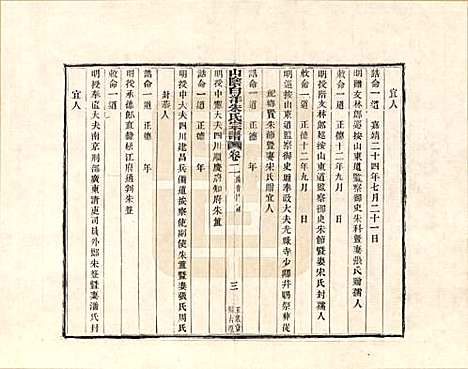 宜人
誥命一道　嘉靖二十四年七月二十一日
明贈文林郎巡按山東道監察御史朱科暨妻張氏贈孺人
敕命一道　正德十二年九月　日
明授文林郎巡按山東道監察御史朱節暨妻宋氏封孺人
敕命一道　正德十二年九月　日
明巡按山東道監察御史贈奉政大夫光祿寺少卿幷賜祭葬從
祀鄉賢朱節暨妻宋氏贈宜人
誥命一道　正德　年
山陰白洋朱氏宗譜　卷二
三
玉泉堂
明授中憲大夫四川順慶府知府朱簠
誥命一道　正德　年
明授中大夫四川建昌兵備道按察使司副使朱簠暨妻張氏周氏
封恭人
敕命一道　正德　年
明授承德郎直隸松江府通判朱簦
敕命一道
明授奉直大夫南京刑部廣東清吏司員外郎朱簦暨妻潘氏封
宜人